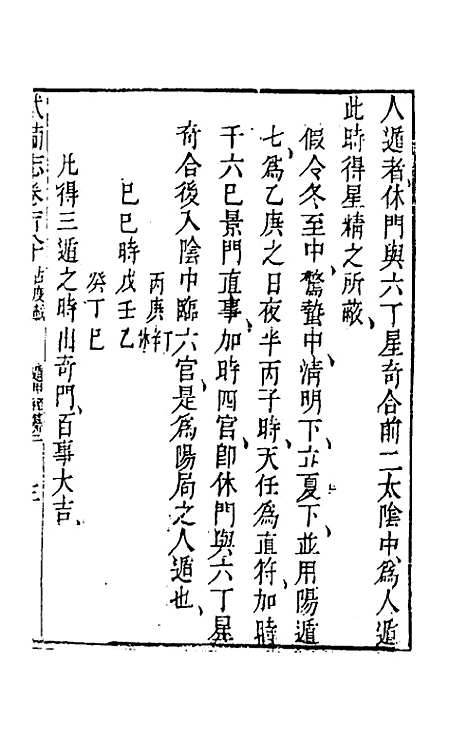 人遁者休門與六丁星奇合前二太陰中爲人遁
此時得星精之所蔽
假令冬至中驚蟄中清明下立夏下並用陽遁
七爲乙庚之日夜半丙子時天任爲直符加時
干六巳景門直事加時四宮卽休門與六丁星
奇合後入陰中臨六宮是爲陽局之人遁也
丙庚辛丁
巳巳時戊壬乙
癸丁巳
凡得三遁之時出奇門百事大吉
武備志卷百八十 占度載